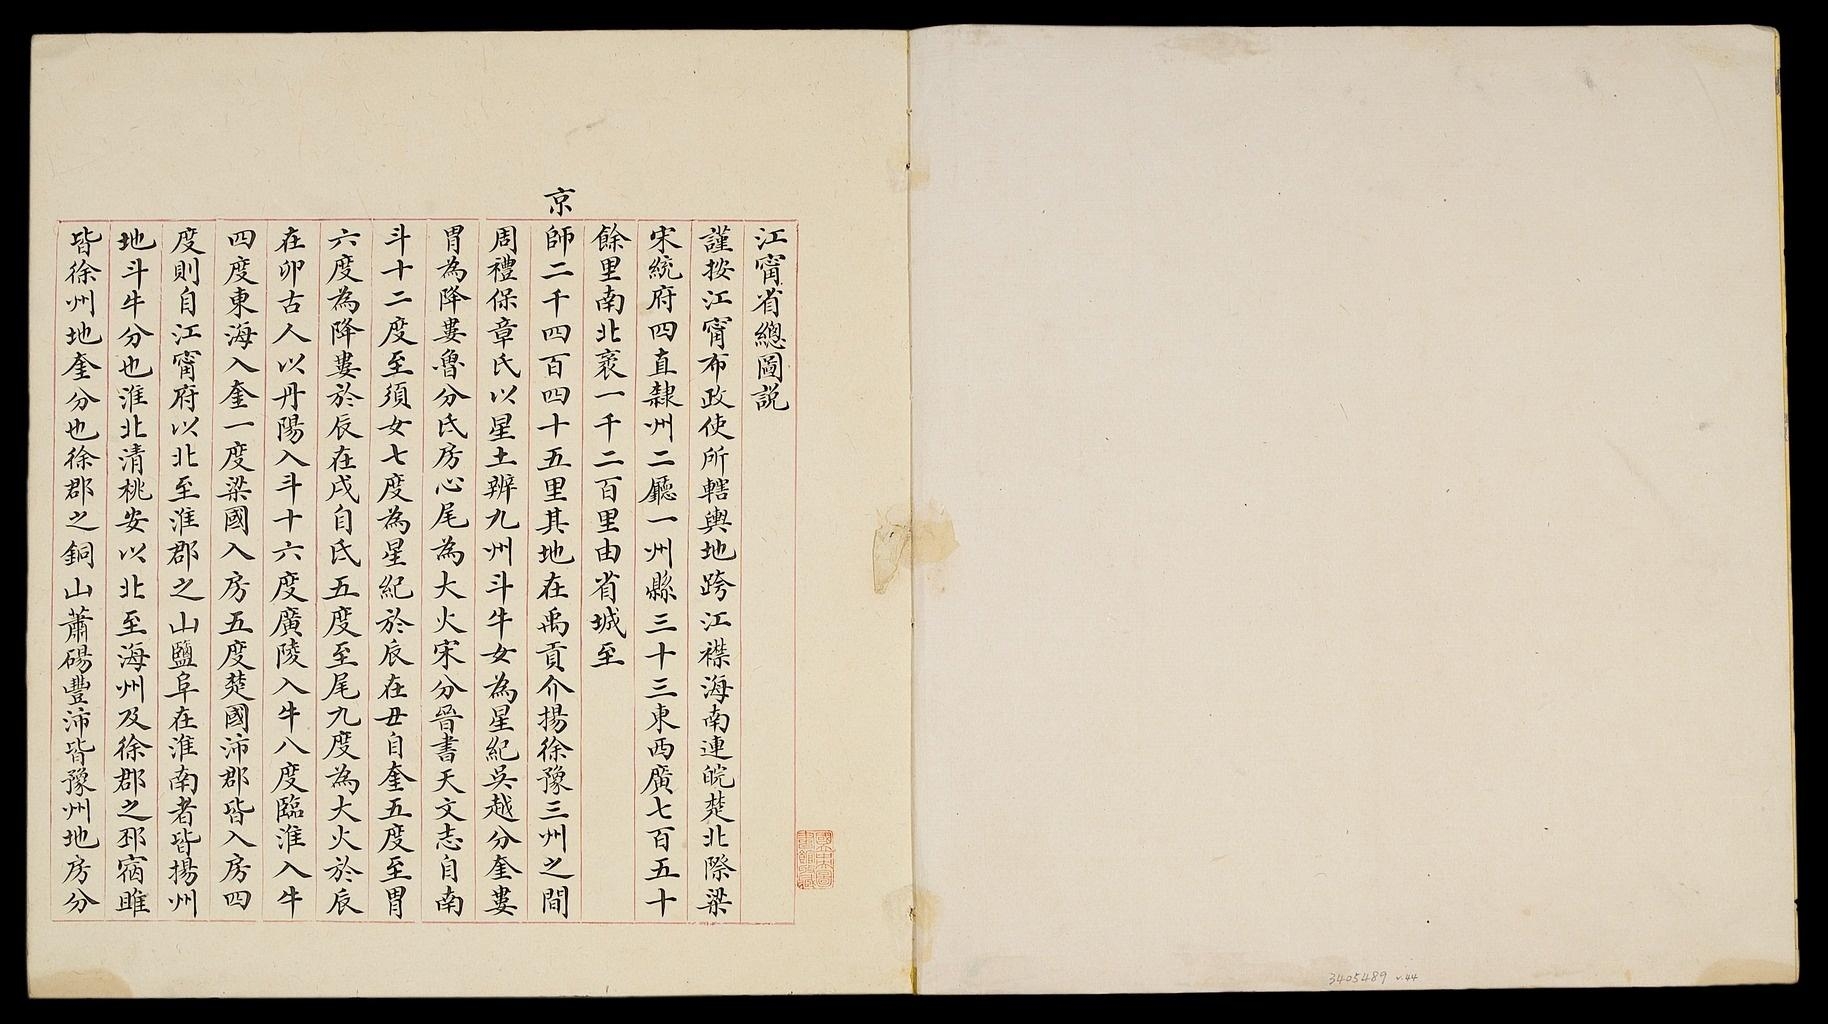 江甯省總圖説
謹按江甯布政使所轄輿地跨江襟海南連皖楚北際梁
宋統府四直隸州二廳一州縣三十三東西廣七百五十
餘里南北袤一千二百里由省城至
京師二千四百四十五里其地在禹貢介揚徐豫三州之間
周禮保章氏以星土辨九州斗牛女為星紀吳越分奎婁
胃為降婁魯分氐房心尾為大火宋分晉書天文志自南
斗十二度至須女七度為星紀於辰在丑自奎五度至胃
六度為降婁於辰在戌自氐五度至尾九度為大火於辰
在卯古人以丹陽入斗十六度廣陵入牛八度臨淮入牛
四度東海入奎一度梁國入房五度楚國沛郡皆入房四
度則自江甯府以北至淮郡之山鹽阜在淮南者皆揚州
地斗牛分也淮北清桃安以北至海州及徐郡之邳宿睢
皆徐州地奎分也徐郡之銅山蕭碭豐沛皆豫州地房分
國立中央圖書館收藏
3405489 v.44